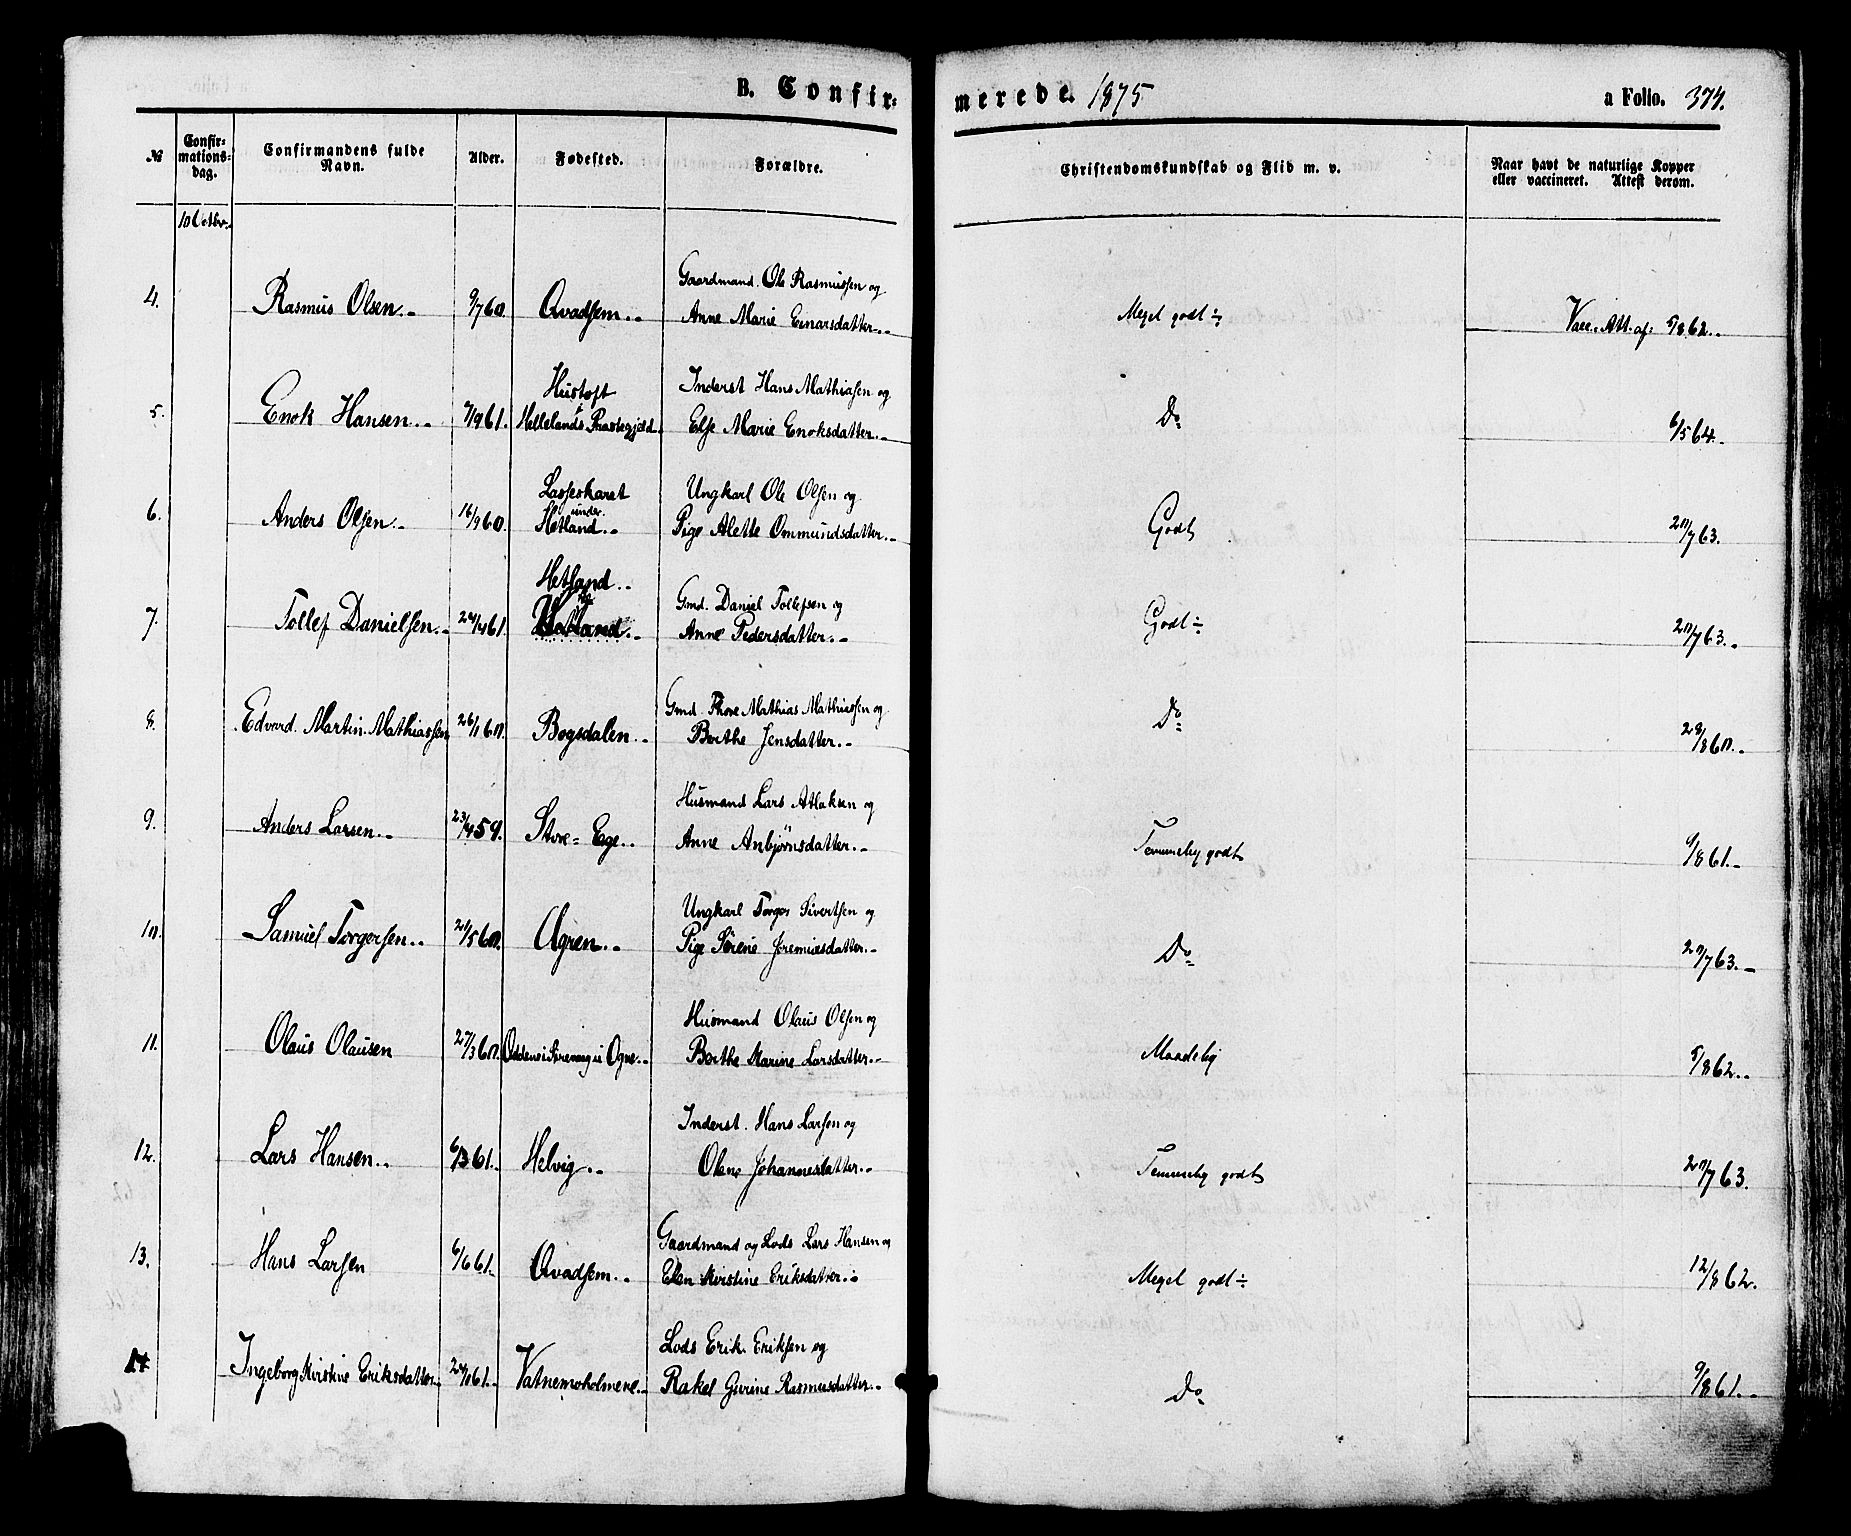 B. Confir-
merede. 1875
a Folio. 374.
№
Confir-
mations-
dag.
Confirmandens fulde
Navn.
Alder.
Fødested.
Forældre.
Christendomskundskab og Flid m. v.
Naar havt de naturlige Kopper
eller vaccineret. Attest derom.
10 Octbr.
4. Rasmus Olsen 9/7 60 Qvadsem Gaardmand Ole Rasmussen og
Anne Marie Einarsdatter
Meget godt ÷ Vacc. Att. af: 5/8 62.
5. Enok Hansen 7/9 61. Hustoft
i Hellelands Præstegjæld Inderst Hans Mathiasen og
Else Marie Enoksdatter
Do 6/5 64.
6. Anders Olsen 16/9 60. Lasseskaret
under
Hetland Ungkarl Ole Olsen og
Pige Alette Ommundsdatter
Godt 20/7 63.
7. Tollef Danielsen 24/4 61. Hetland
Gmd. Daniel Tollefsen og
Anne Pedersdatter
Godt ÷ 20/7 63.
8. Edvard Martin Mathiassen 26/1 60. Bogsdalen Gmd. Thore Mathias Mathiassen og
Berthe Jensdatter
Do 28/8 60.
9. Anders Larsen 23/4 59. Store-Ege Husmand Lars Atlaksen og
Anne Anbjørnsdatter
Temmelig godt 9/8 61.
10. Samuel Torgersen 20/5 60. Ogren Ungkarl Torger Sivertsen og
Pige Serine Jeremiesdatter
Do 20/7 63.
11. Olaus Olausen 27/3 60. Ogne Husmand Olaus Olsen og
Berthe Karine Larsdatter
Maadelig 5/8 62.
12. Lars Hansen 6/3 61. Helvig Inderst Hans Larsen og
Olene Johannesdatter
Temmelig godt 20/7 63.
13. Hans Larsen 6/6 61. Qvadsem Gaardmand og Lods Lars Hansen og
Elen Kirstine Eriksdatter
Meget godt ÷ 12/8 62.
14 Ingeborg Kirstine Eriksdatter Vatnemoholmene Lods Erik Eriksen og
Rakel Gurine Rasmusdatter
Do 9/8 61.